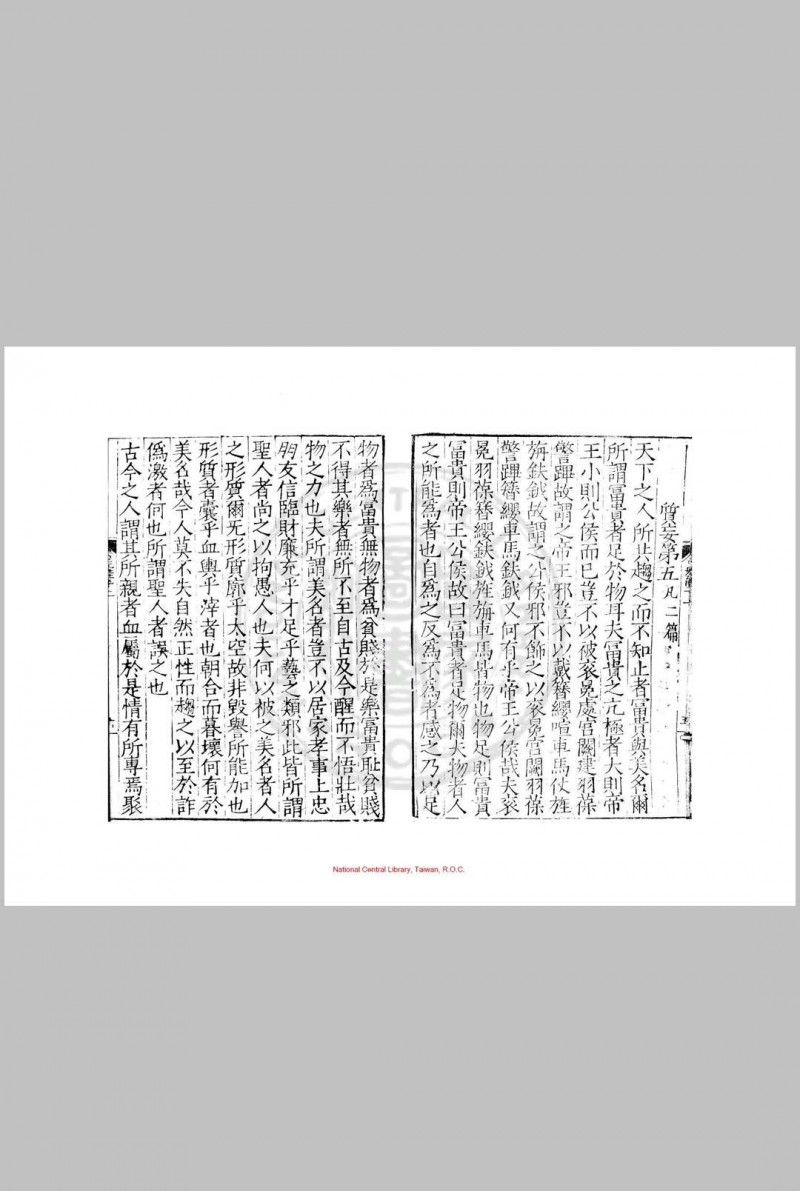 質妄第五凡二篇
天下之人所共趨之而不知止者富貴與美名爾
所謂富貴者足於物耳夫富貴之亢極者大則帝
王小則公侯而已豈不以被衮冕處宮闕建羽葆
警蹕故謂之帝王邪豈不以戴簪纓喧車馬仗旌
旃鈇鉞故謂之公侯邪不飾之以衮冕宮闕羽葆
警蹕簪纓車馬鈇鉞又何有乎帝王公侯哉夫衮
冕羽葆簪纓鈇鉞旌旃車馬皆物也物足則富貴
富貴則帝王公侯故曰富貴者足物爾夫物者人
之所能為者也自為之反為不為者惑之乃以足
物者為富貴無物者為貧賤於是樂富貴恥貧賤
不得其樂者無所不至自古及今醒而不悟壯哉
物之力也夫所謂美名者豈不以居家孝事上忠
朋友信臨財廉充乎才足乎藝之類邪此皆所謂
聖人者尚之以拘愚人也夫何以被之美名者人
之形質爾无形質廓乎太空故非毀譽所能加也
形質者囊乎血輿乎滓者也朝合而暮壞何有於
美名哉今人莫不失自然正性而趨之以至於詐
偽激者何也所謂聖人者誤之也
古今之人謂其所親者血屬於是情有所專焉聚
National Central Library, Taiwan, R.O.C.